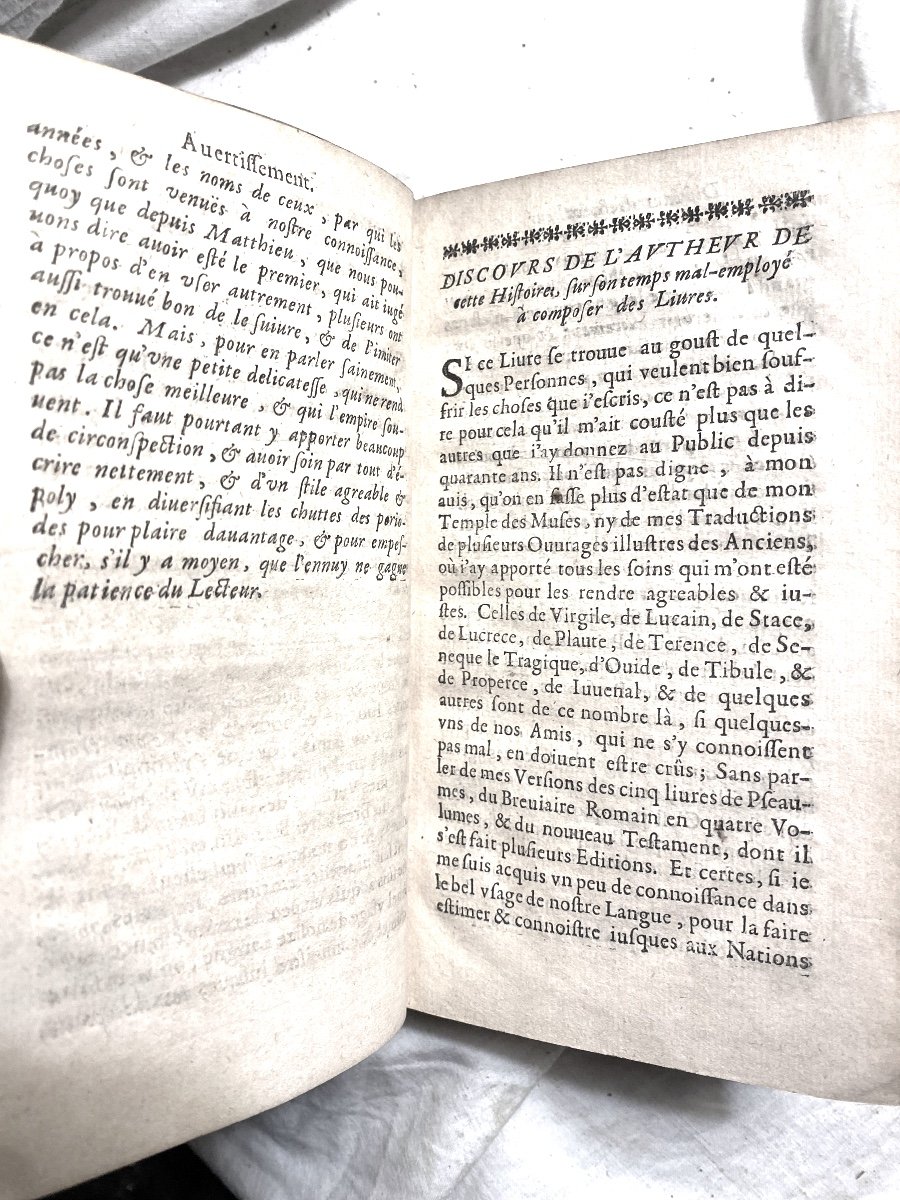 Auertissement.
années, & les noms de ceux, par qui les
choses sont venuës à nostre connoissance,
quoy que depuis Matthieu, que nous pou-
uons dire auoir esté le premier, qui ait iugé
à propos d'en vser autrement, plusieurs ont
aussi trouué bon de le suiure, & de l'imiter
en cela. Mais, pour en parler sainement,
ce n'est qu'vne petite delicatesse, qui ne rend
pas la chose meilleure, & qui l'empire sou-
uent. Il faut pourtant y apporter beaucoup
de circonspection, & auoir soin par tout d'é-
crire nettement, & d'vn stile agreable &
poly, en diuersifiant les chuttes des perio-
des pour plaire dauantage, & pour empes-
cher, s'il y a moyen, que l'ennuy ne gagne
la patience du Lecteur.
DISCOVRS DE L'AVTHEVR DE
cette Histoire, sur son temps mal-employé
à composer des Liures.
SI ce Liure se trouue au goust de quel-
ques Personnes, qui veulent bien souf-
frir les choses que i'escris, ce n'est pas à di-
re pour cela qu'il m'ait cousté plus que les
autres que i'ay donnez au Public depuis
quarante ans. Il n'est pas digne, à mon
auis, qu'on en fasse plus d'estat que de mon
Temple des Muses, ny de mes Traductions
de plusieurs Ouurages illustres des Anciens,
où i'ay apporté tous les soins qui m'ont esté
possibles pour les rendre agreables & iu-
stes. Celles de Virgile, de Lucain, de Stace,
de Lucrece, de Plaute, de Terence, de Se-
neque le Tragique, d'Ouide, de Tibule, &
de Properce, de Iuuenal, & de quelques
autres sont de ce nombre là, si quelques-
vns de nos Amis, qui ne s'y connoissent
pas mal, en doiuent estre crûs; Sans par-
ler de mes Versions des cinq liures de Pseau-
mes, du Breuiaire Romain en quatre Vo-
lumes, & du nouueau Testament, dont il
s'est fait plusieurs Editions. Et certes, si ie
me suis acquis vn peu de connoissance dans
le bel vsage de nostre Langue, pour la faire
estimer & connoistre iusques aux Nations